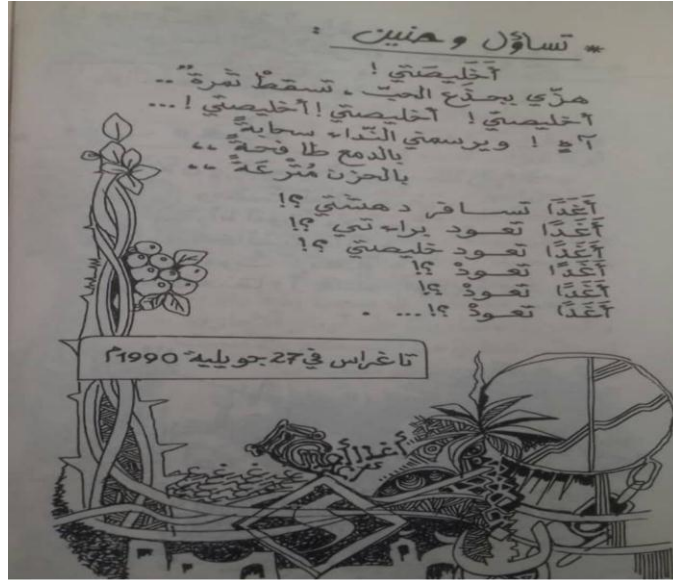 * تساؤل و حنين :
أَخَلِيصَتي !
هزّي بجذع الحبّ ، تسقطْ تمرة ..
أخليصتي ! أخليصتي ! أخليصتي ! ...
آهٍ ! ويرسمني النّداء سحابةً
بالدمع طافحةً ،،
بالحزن مُتْرعَةً ،،
أَغَدًا تسافر دهشتي ؟!
أَغَدًا تعود براءتي ؟!
أَغَدًا تعود خليصتي ؟!
أَغَدًا تعودْ ؟!
أَغَدًا تعودْ ؟!
أَغَدًا تعودْ ؟!... .
تاغراس في 27 جويلية 1990م
أغدا